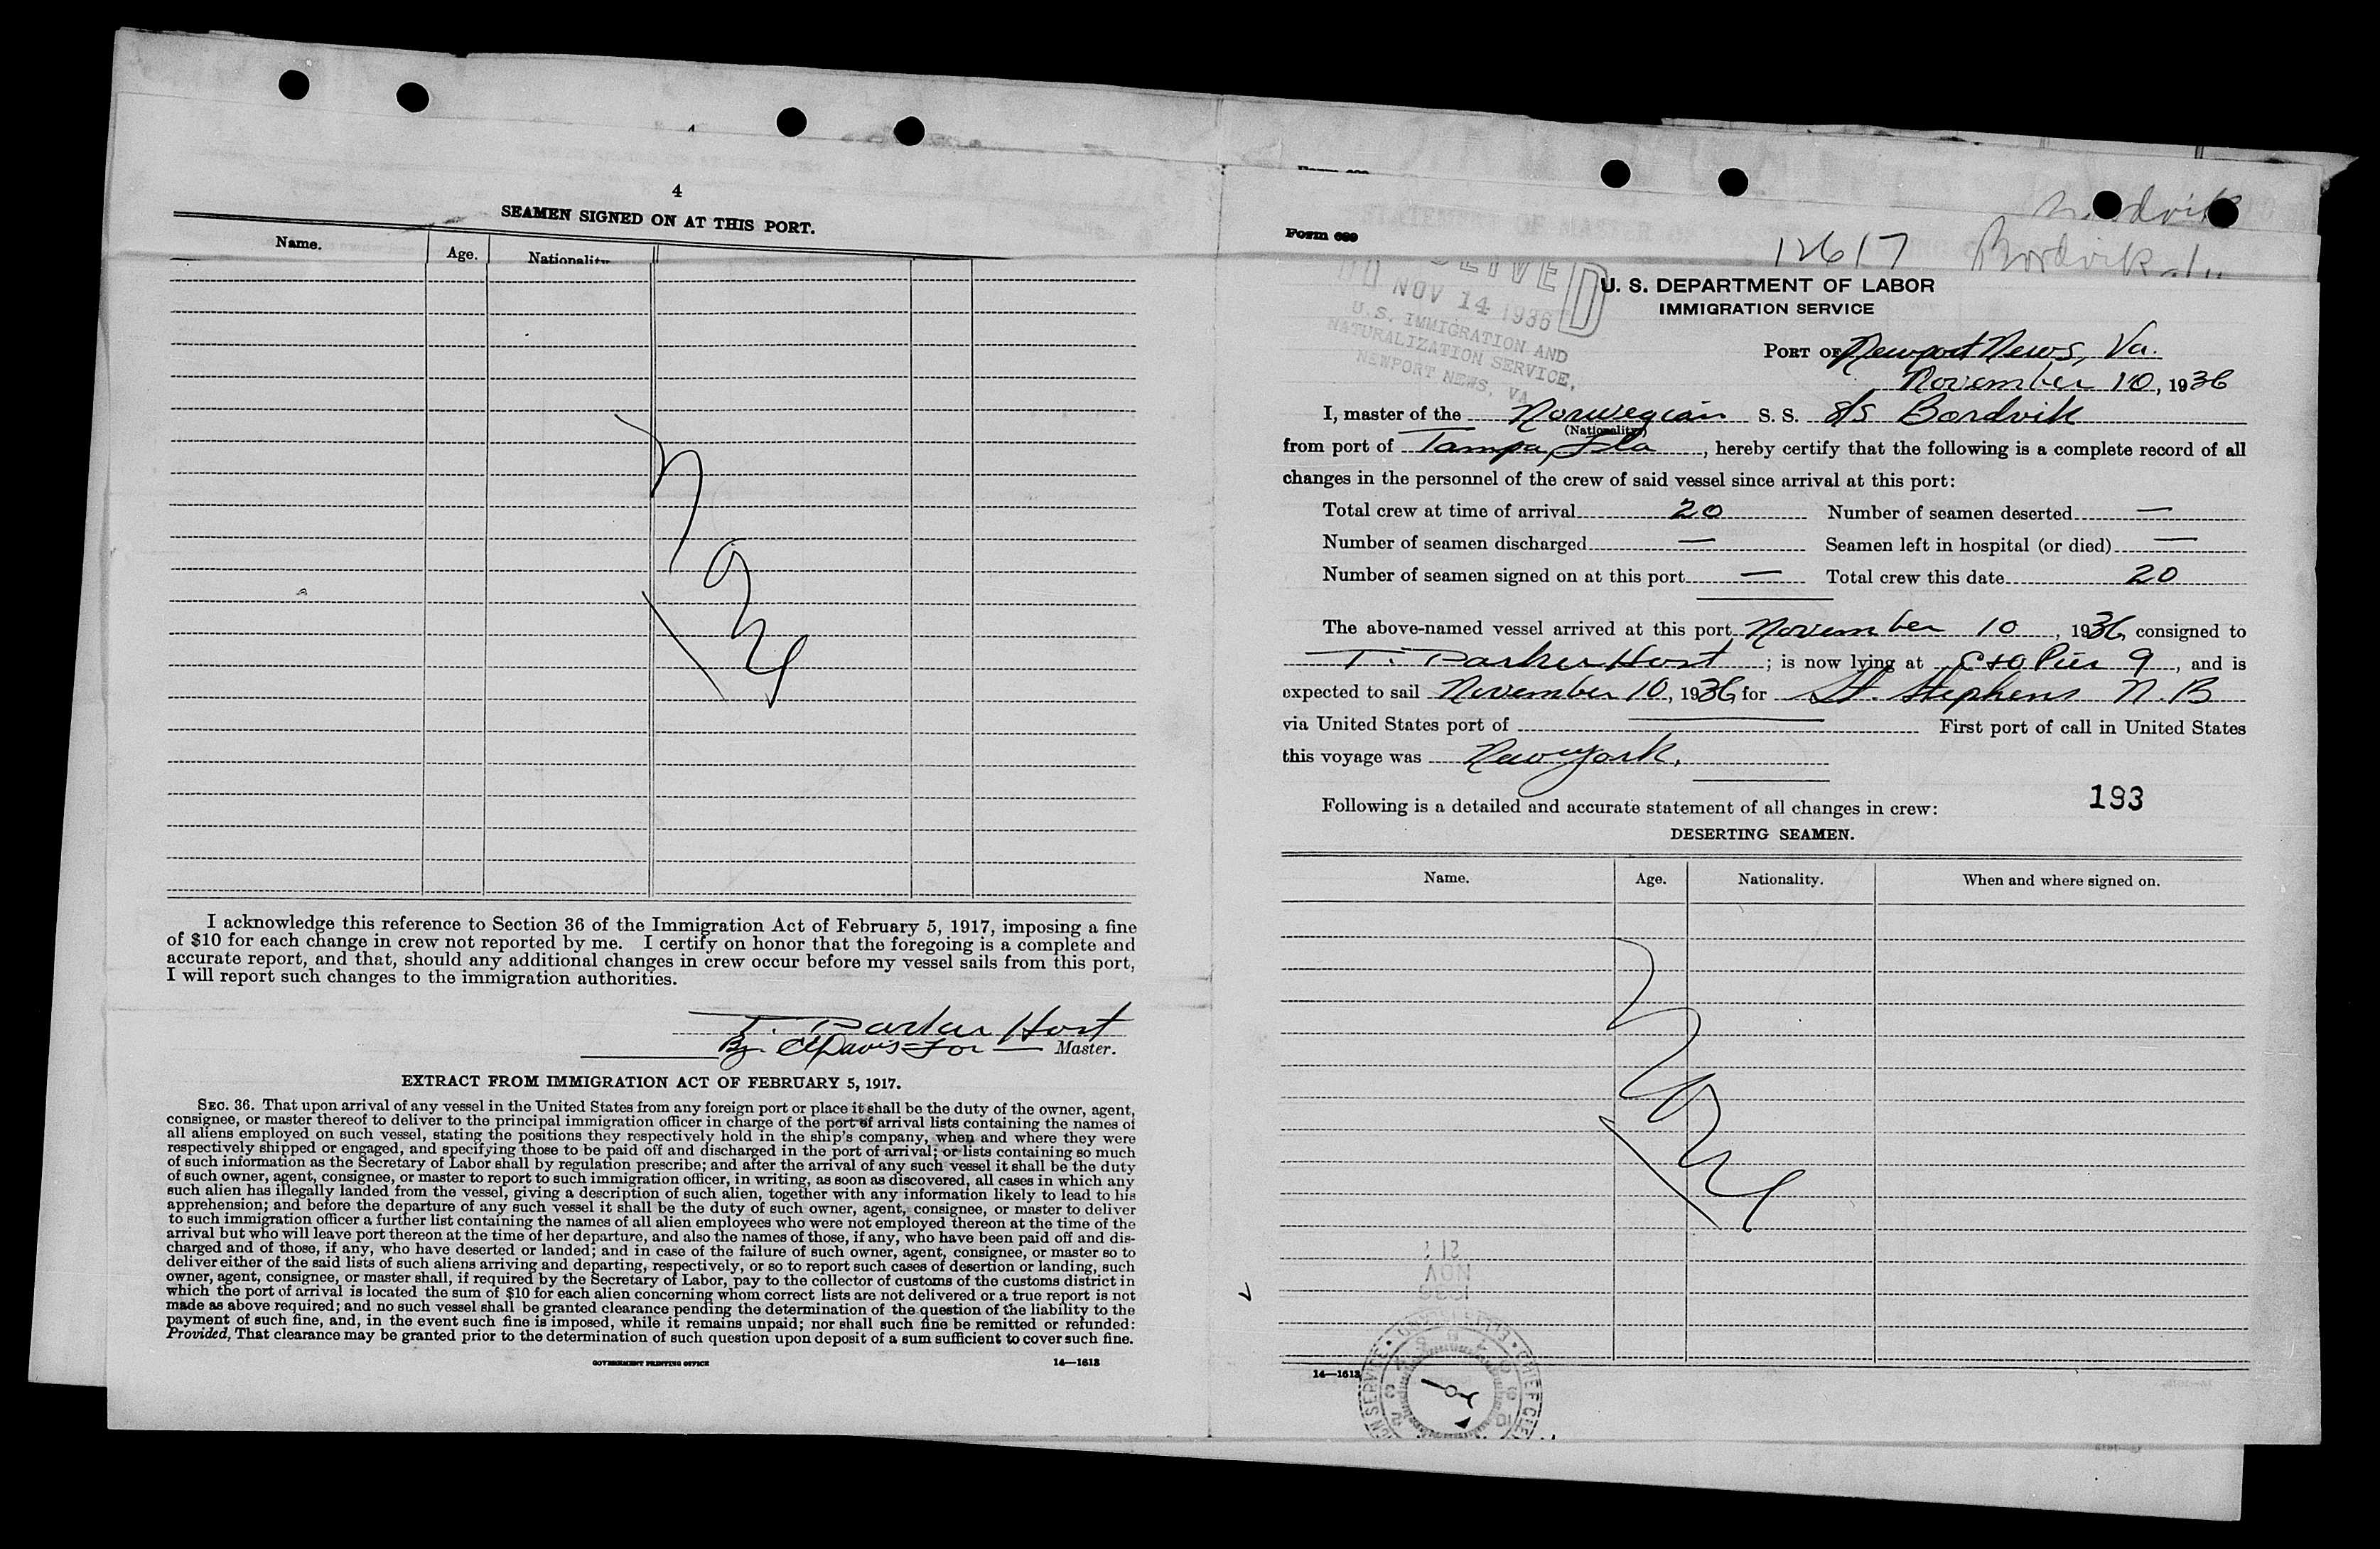 4
SEAMEN SIGNED ON AT THIS PORT.
Name. Age. Nationality
None
I acknowledge this reference to Section 36 of the Immigration Act of February 5, 1917, imposing a fine
of $10 for each change in crew not reported by me. I certify on honor that the foregoing is a complete and
accurate report, and that, should any additional changes in crew occur before my vessel sails from this port,
I will report such changes to the immigration authorities.
T. Parker Host
By Davis For Master.
EXTRACT FROM IMMIGRATION ACT OF FEBRUARY 5, 1917.
SEC. 36. That upon arrival of any vessel in the United States from any foreign port or place it shall be the duty of the owner, agent,
consignee, or master thereof to deliver to the principal immigration officer in charge of the port of arrival lists containing the names of
all aliens employed on such vessel, stating the positions they respectively hold in the ship's company, when and where they were
respectively shipped or engaged, and specifying those to be paid off and discharged in the port of arrival; or lists containing so much
of such information as the Secretary of Labor shall by regulation prescribe; and after the arrival of any such vessel it shall be the duty
of such owner, agent, consignee, or master to report to such immigration officer, in writing, as soon as discovered, all cases in which any
such alien has illegally landed from the vessel, giving a description of such alien, together with any information likely to lead to his
apprehension; and before the departure of any such vessel it shall be the duty of such owner, agent, consignee, or master to deliver
to such immigration officer a further list containing the names of all alien employees who were not employed thereon at the time of the
arrival but who will leave port thereon at the time of her departure, and also the names of those, if any, who have been paid off and dis-
charged and of those, if any, who have deserted or landed; and in case of the failure of such owner, agent, consignee, or master so to
deliver either of the said lists of such aliens arriving and departing, respectively, or so to report such cases of desertion or landing, such
owner, agent, consignee, or master shall, if required by the Secretary of Labor, pay to the collector of customs of the customs district in
which the port of arrival is located the sum of $10 for each alien concerning whom correct lists are not delivered or a true report is not
made as above required; and no such vessel shall be granted clearance pending the determination of the question of the liability to the
payment of such fine, and, in the event such fine is imposed, while it remains unpaid; nor shall such fine be remitted or refunded:
Provided, That clearance may be granted prior to the determination of such question upon deposit of a sum sufficient to cover such fine.
GOVERNMENT PRINTING OFFICE 14—1613
Form 689
12617 Bordvik
U. S. DEPARTMENT OF LABOR
IMMIGRATION SERVICE
NOV 14 1936
U.S. IMMIGRATION AND
NATURALIZATION SERVICE,
NEWPORT NEWS, VA
PORT OF Newport News, Va.
November 10, 1936
I, master of the Norwegian S. S. s/s Bordvik
(Nationality)
from port of Tampa, Fla, hereby certify that the following is a complete record of all
changes in the personnel of the crew of said vessel since arrival at this port:
Total crew at time of arrival 20 Number of seamen deserted —
Number of seamen discharged — Seamen left in hospital (or died) —
Number of seamen signed on at this port — Total crew this date 20
The above-named vessel arrived at this port November 10, 1936, consigned to
T. Parker Host; is now lying at C+O Pier 9, and is
expected to sail November 10, 1936, for St. Stephens N.B
via United States port of —— First port of call in United States
this voyage was New York.
193
Following is a detailed and accurate statement of all changes in crew:
DESERTING SEAMEN.
Name. Age. Nationality. When and where signed on.
None
NOV
14—1613